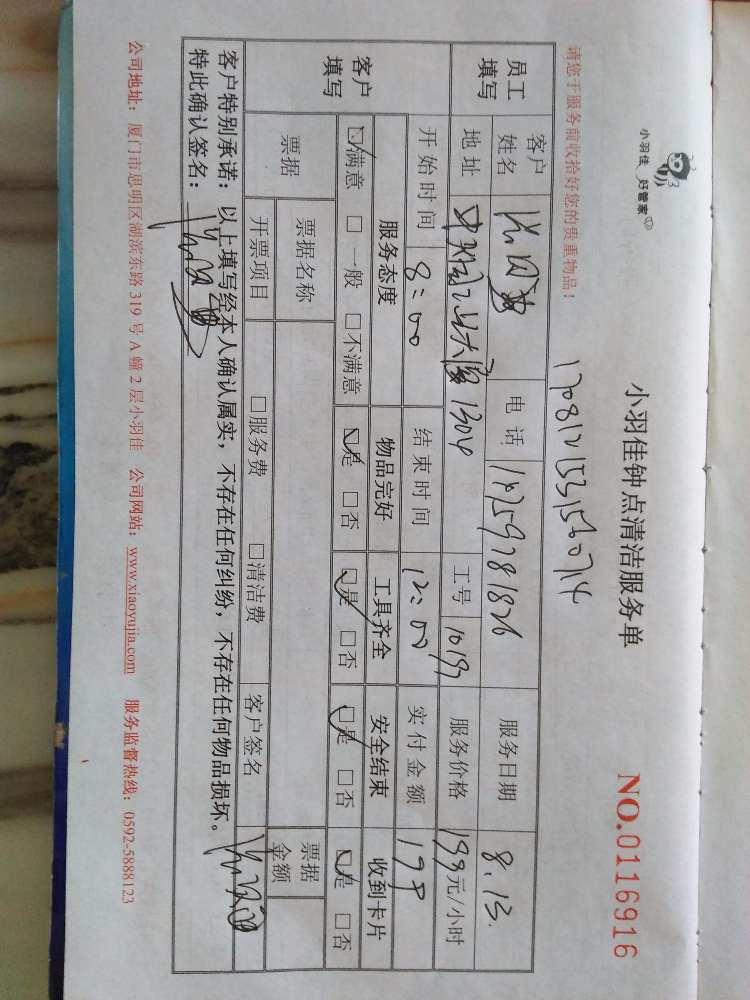 小羽佳 好管家
小羽佳钟点清洁服务单
NO.0116916
请您于服务前收拾好您的贵重物品！
员工填写
客户姓名 电话 服务日期 8.13.
地址 1304 工号 服务价格 199元/小时
客户填写
开始时间 8:00 结束时间 12:00 实付金额 199
服务态度 物品完好 工具齐全 安全结束 收到卡片
☑满意 □一般 □不满意 ☑是 □否 ☑是 □否 ☑是 □否 ☑是 □否
票据 票据名称 票据金额
开票项目 □服务费 □清洁费 客户签名
客户特别承诺：以上填写经本人确认属实，不存在任何纠纷，不存在任何物品损坏。
特此确认签名：
公司地址：厦门市思明区湖滨东路 319 号 A 幢 2 层小羽佳 公司网站：www.xiaoyujia.com 服务监督热线：0592-5888123